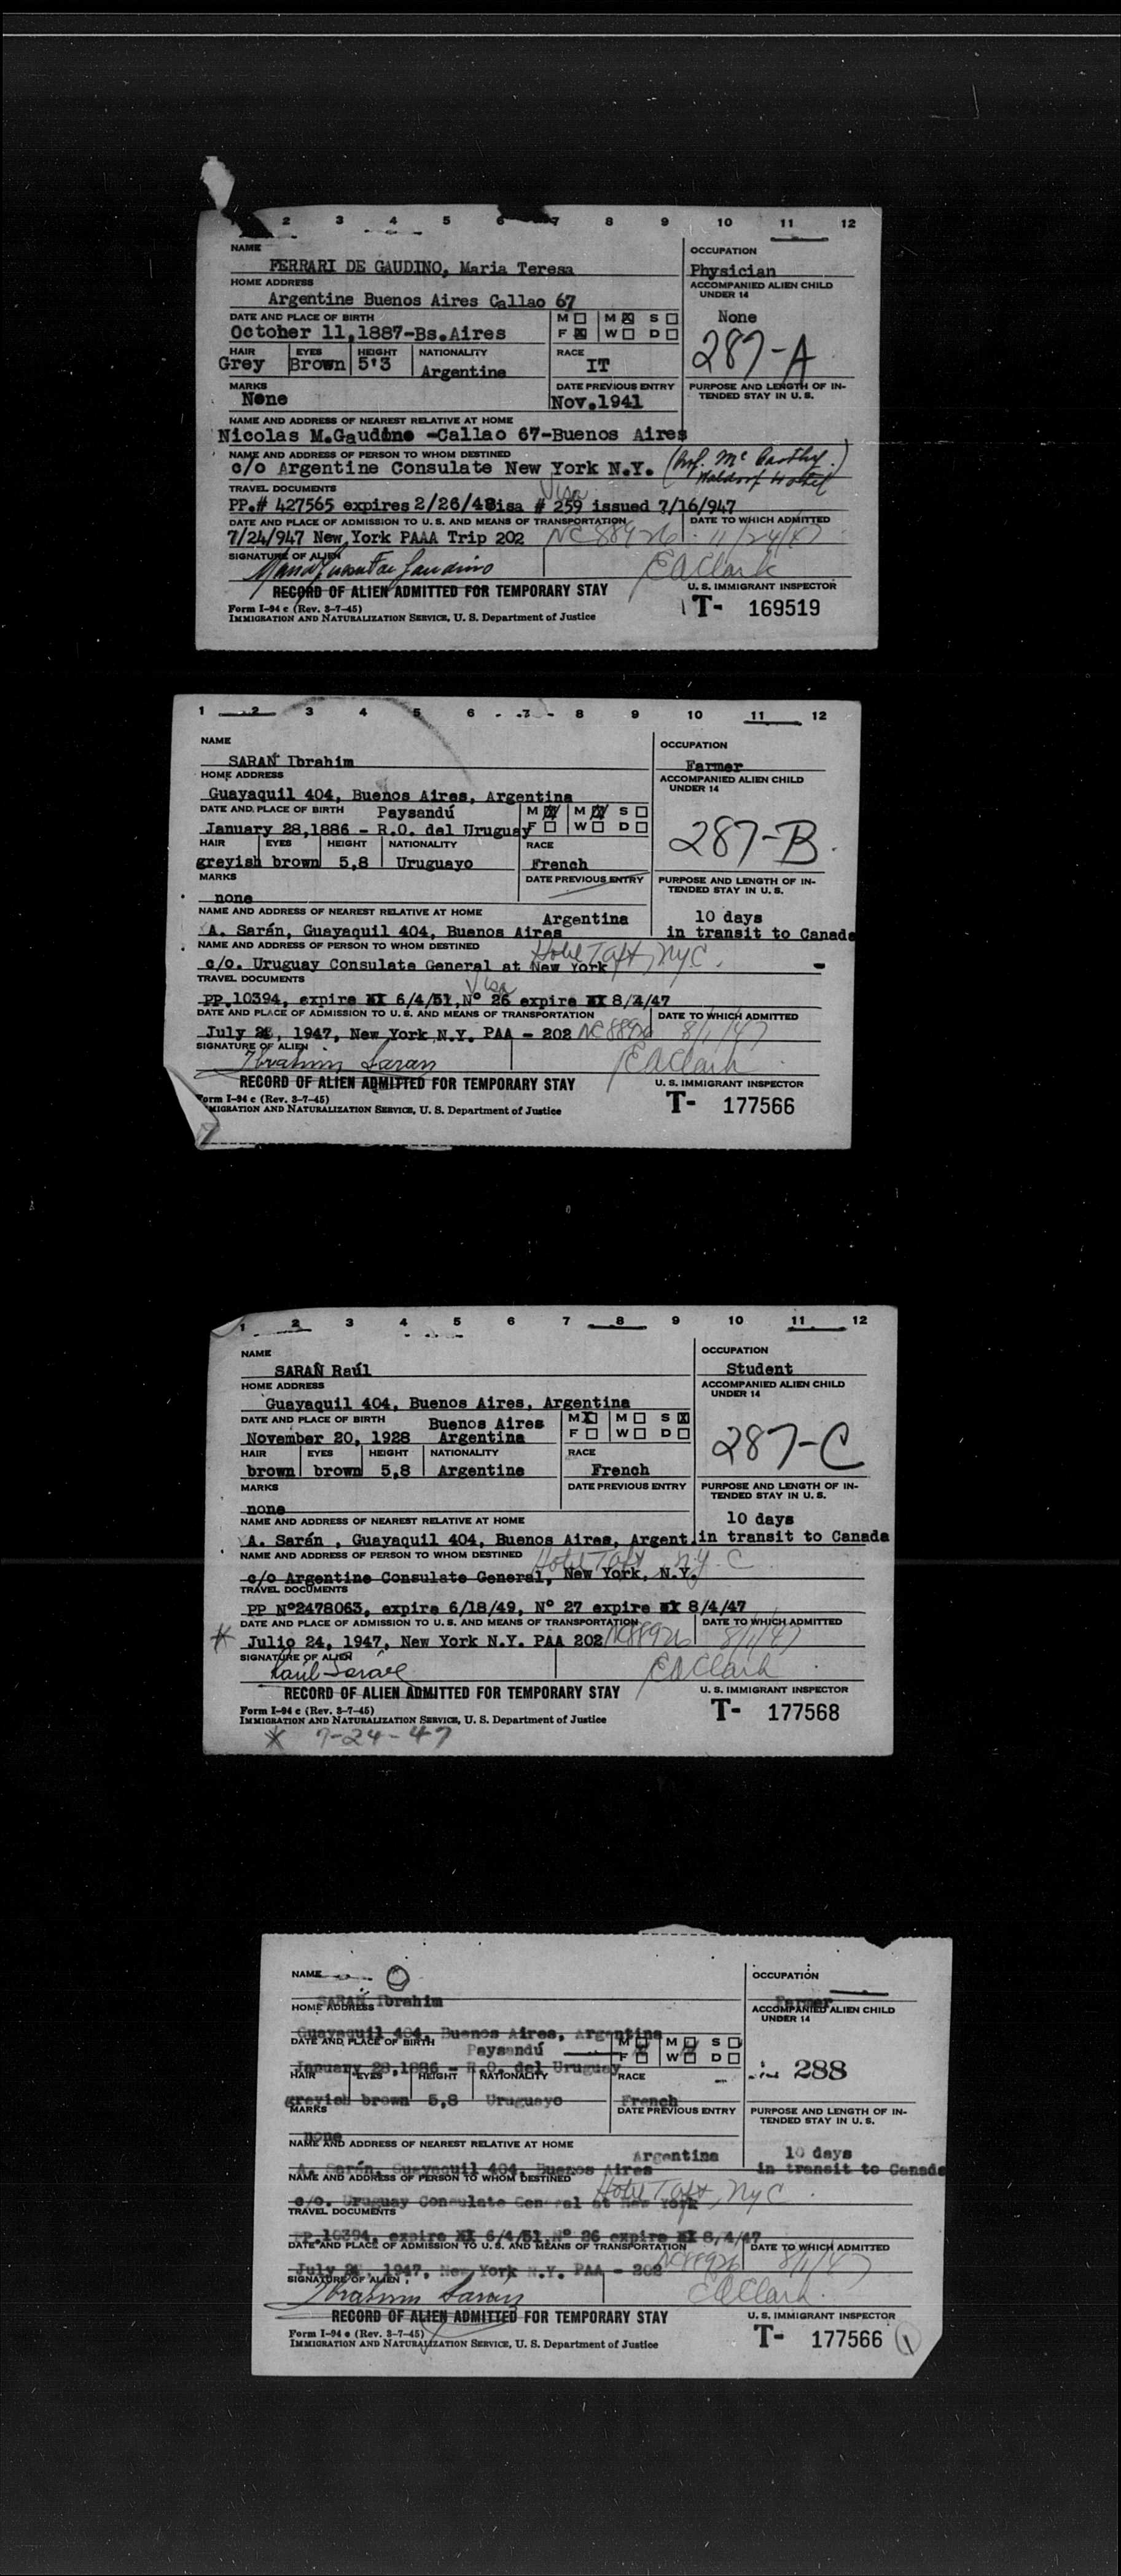 1 2 3 4 5 6 7 8 9 10 11 12
NAME OCCUPATION
FERRARI DE GAUDINO, Maria Teresa Physician
HOME ADDRESS ACCOMPANIED ALIEN CHILD UNDER 14
Argentine Buenos Aires Callao 67
DATE AND PLACE OF BIRTH M M S None
October 11,1887-Bs.Aires F W D
287-A
HAIR EYES HEIGHT NATIONALITY RACE
Grey Brown 5'3 Argentine IT
MARKS DATE PREVIOUS ENTRY PURPOSE AND LENGTH OF IN-
TENDED STAY IN U. S.
None Nov.1941
NAME AND ADDRESS OF NEAREST RELATIVE AT HOME
Nicolas M.Gaudino -Callao 67-Buenos Aires
NAME AND ADDRESS OF PERSON TO WHOM DESTINED
c/o Argentine Consulate New York N.Y. (Prof. Mc Carthy.)
Waldorf Hotel
TRAVEL DOCUMENTS Visa
PP.# 427565 expires 2/26/48isa # 259 issued 7/16/947
DATE AND PLACE OF ADMISSION TO U. S. AND MEANS OF TRANSPORTATION DATE TO WHICH ADMITTED
7/24/947 New York PAAA Trip 202 NC 88926 11/24/47
SIGNATURE OF ALIEN
EAClark
RECORD OF ALIEN ADMITTED FOR TEMPORARY STAY U. S. IMMIGRANT INSPECTOR
Form I-94 c (Rev. 3-7-45)
IMMIGRATION AND NATURALIZATION SERVICE, U. S. Department of Justice
T- 169519
1 2 3 4 5 6 7 8 9 10 11 12
NAME OCCUPATION
SARAN Ibrahim Farmer
HOME ADDRESS ACCOMPANIED ALIEN CHILD UNDER 14
Guayaquil 404, Buenos Aires, Argentina
DATE AND PLACE OF BIRTH Paysandú M M S
January 28,1886 - R.O. del Uruguay F W D
287-B
HAIR EYES HEIGHT NATIONALITY RACE
greyish brown 5,8 Uruguayo French
MARKS DATE PREVIOUS ENTRY PURPOSE AND LENGTH OF IN-
TENDED STAY IN U. S.
none
NAME AND ADDRESS OF NEAREST RELATIVE AT HOME Argentina 10 days
A. Sarán, Guayaquil 404, Buenos Aires in transit to Canada
NAME AND ADDRESS OF PERSON TO WHOM DESTINED Hotel Taft, NYC.
c/o. Uruguay Consulate General at New York
TRAVEL DOCUMENTS Visa
PP.10394, expire 6/4/51,Nº 26 expire 8/4/47
DATE AND PLACE OF ADMISSION TO U. S. AND MEANS OF TRANSPORTATION DATE TO WHICH ADMITTED
July , 1947, New York N.Y. PAA - 202 NC 88926 8/1/47
SIGNATURE OF ALIEN
Ibrahim Saran EAClark
RECORD OF ALIEN ADMITTED FOR TEMPORARY STAY U. S. IMMIGRANT INSPECTOR
Form I-94 c (Rev. 3-7-45)
IMMIGRATION AND NATURALIZATION SERVICE, U. S. Department of Justice
T- 177566
1 2 3 4 5 6 7 8 9 10 11 12
NAME OCCUPATION
SARAN Raúl Student
HOME ADDRESS ACCOMPANIED ALIEN CHILD UNDER 14
Guayaquil 404, Buenos Aires, Argentina
DATE AND PLACE OF BIRTH Buenos Aires M M S
November 20, 1928 Argentina F W D
287-C
HAIR EYES HEIGHT NATIONALITY RACE
brown brown 5,8 Argentine French
MARKS DATE PREVIOUS ENTRY PURPOSE AND LENGTH OF IN-
TENDED STAY IN U. S.
none
NAME AND ADDRESS OF NEAREST RELATIVE AT HOME 10 days
A. Sarán , Guayaquil 404, Buenos Aires, Argent. in transit to Canada
NAME AND ADDRESS OF PERSON TO WHOM DESTINED Hotel Taft, NYC
c/o Argentine Consulate General, New York, N.Y.
TRAVEL DOCUMENTS
PP Nº2478063, expire 6/18/49, Nº 27 expire 8/4/47
DATE AND PLACE OF ADMISSION TO U. S. AND MEANS OF TRANSPORTATION DATE TO WHICH ADMITTED
* Julio 24, 1947, New York N.Y. PAA 202 NC88926 8/1/47
SIGNATURE OF ALIEN
EAClark
RECORD OF ALIEN ADMITTED FOR TEMPORARY STAY U. S. IMMIGRANT INSPECTOR
Form I-94 c (Rev. 3-7-45)
IMMIGRATION AND NATURALIZATION SERVICE, U. S. Department of Justice
T- 177568
* 7-24-47
NAME OCCUPATION
SARAN Ibrahim Farmer
HOME ADDRESS ACCOMPANIED ALIEN CHILD UNDER 14
Guayaquil 404, Buenos Aires, Argentina
DATE AND PLACE OF BIRTH Paysandú M M S
F W D
January 28,1886 - R.O. del Uruguay
288
HAIR EYES HEIGHT NATIONALITY RACE
greyish brown 5,8 Uruguayo French
MARKS DATE PREVIOUS ENTRY PURPOSE AND LENGTH OF IN-
TENDED STAY IN U. S.
none
NAME AND ADDRESS OF NEAREST RELATIVE AT HOME
Argentina 10 days
A. Sarán, Guayaquil 404, Buenos Aires in transit to Canada
NAME AND ADDRESS OF PERSON TO WHOM DESTINED
Hotel Taft, NYC.
c/o. Uruguay Consulate General at New York
TRAVEL DOCUMENTS
PP.10394, expire 6/4/51, Nº 26 expire 8/4/47
DATE AND PLACE OF ADMISSION TO U. S. AND MEANS OF TRANSPORTATION DATE TO WHICH ADMITTED
July , 1947, New York N.Y. PAA - 202 NC88926 8/1/47
SIGNATURE OF ALIEN
Ibrahim Saran EAClark
RECORD OF ALIEN ADMITTED FOR TEMPORARY STAY U. S. IMMIGRANT INSPECTOR
Form I-94 c (Rev. 3-7-45)
IMMIGRATION AND NATURALIZATION SERVICE, U. S. Department of Justice
T- 177566 1